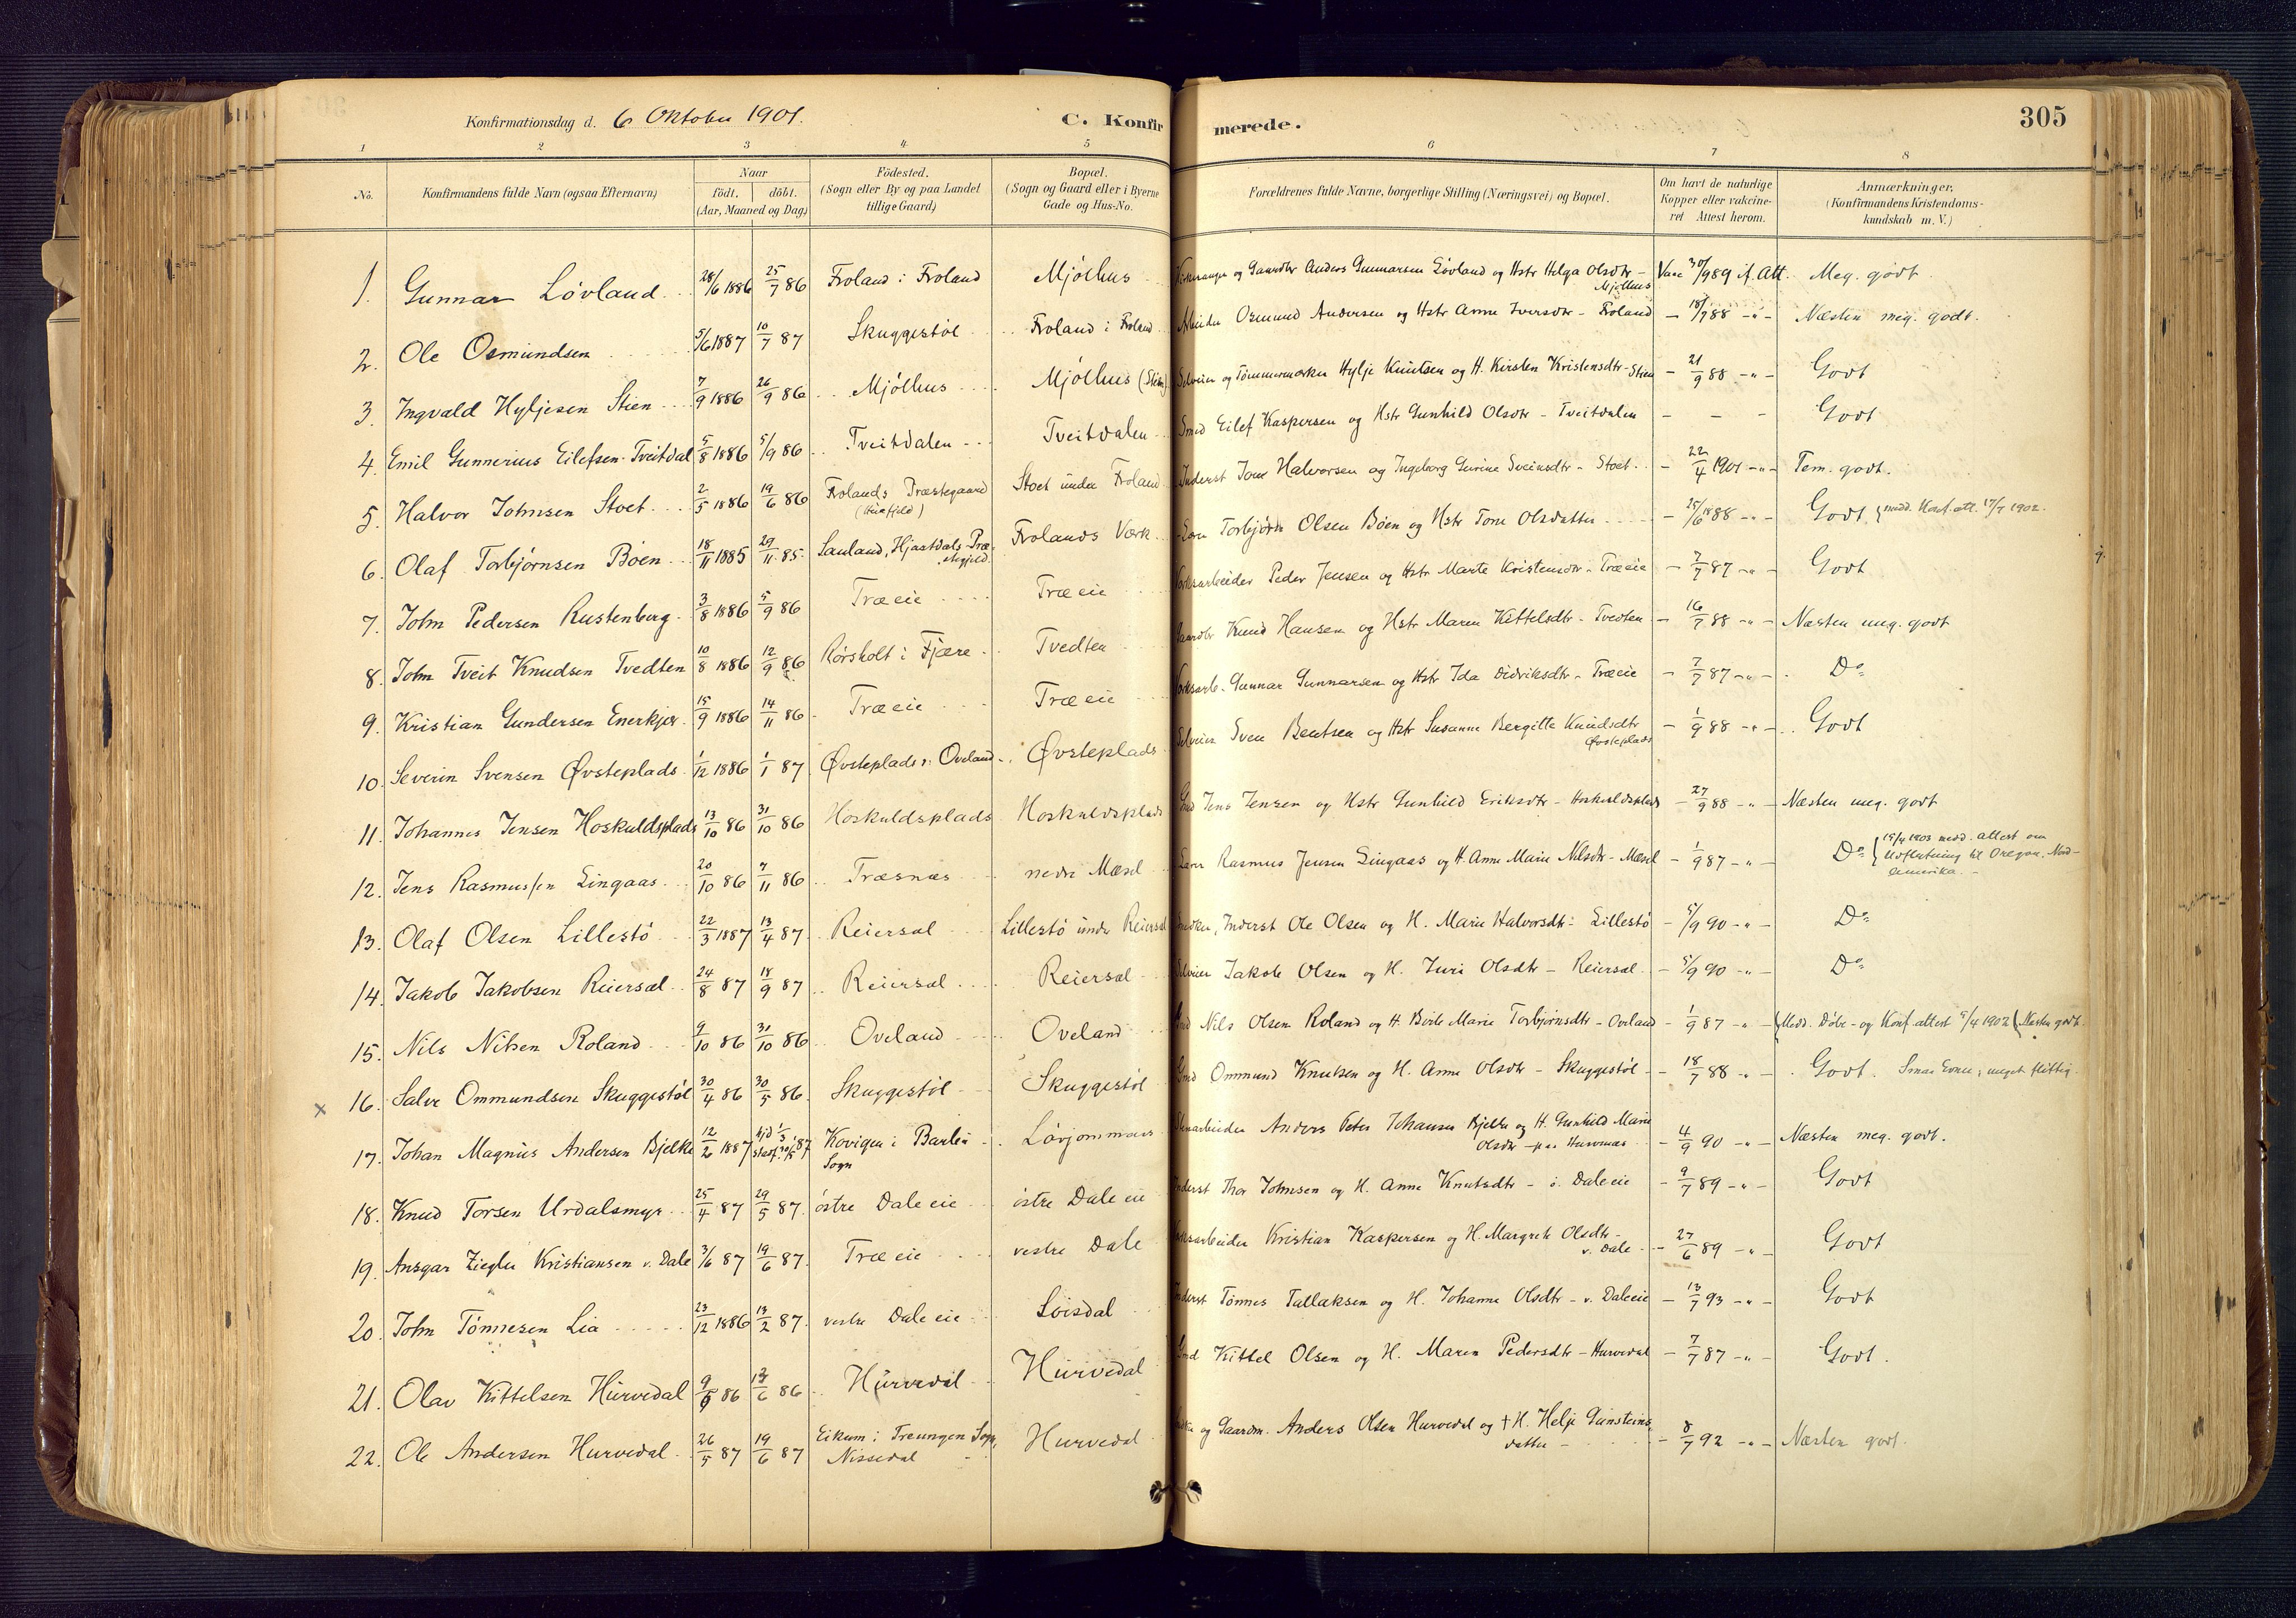 Konfirmationsdag d. 6 Oktober 1901.
C. Konfirmerede.
305
1 2 3 4 5 6 7 8
No.
Konfirmandens fulde Navn (ogsaa Efternavn)
Naar
født. døbt.
(Aar, Maaned og Dag)
Fødested.
(Sogn eller By og paa Landet
tillige Gaard)
Bopæl.
(Sogn og Gaard eller i Byerne
Gade og Hus-No.
Forældrenes fulde Navne, borgerlige Stilling (Næringsvei) og Bopæl.
Om havt de naturlige
Kopper eller vakcine-
ret Attest herom.
Anmærkninger,
(Konfirmandens Kristendoms-
kundskab m. V.)
1. Gunnar Løvland 28/6 1886 25/7 86 Froland i Froland Mjølhus og Gaardbr Anders Gunnarsen Løvland og Hstr Helga Olsdtr - Mjølhus Vacc 30/9 89 if. Att. Meg. godt
2. Ole Osmundsen 5/6 1887 10/7 87 Skuggestøl Froland i Froland Arbeider Osmund Andersen og Hstr Anne Iversdtr - Froland - 18/7 88 -"- Næsten meg. godt.
3. Ingvald Hyljesen Stien 7/9 1886 26/9 86 Mjølhus Mjølhus (Stien) Selveier og Tømmermærker Hylje Knutsen og H. Kirsten Kristensdtr - Stien - 21/9 88 -"- Godt
4. Emil Gunnerius Eilefsen Tveitdal 5/8 1886 5/9 86 Tveitdalen Tveitdalen Smed Eilef Kaspersen og Hstr Gunhild Olsdtr - Tveitdalen - - - Godt
5. Halvor Johnsen Stoet 2/5 1886 19/6 86 Frolands Præstegaard Stoet under Froland Inderst John Halvorsen og Ingeborg Gurine Sveinsdtr - Stoet - 22/4 1901 -"- Tem. godt.
6. Olaf Torbjørnsen Bøen 18/11 1885 29/11 85 Sauland, Hjartdals Præstegjeld Frolands Værk Torbjørn Olsen Bøen og Hstr Tone Olsdatter - 25/6 1888 -"- Godt. {medd. Konf. att. 17/7 1902.
7. John Pedersen Rustenberg 3/8 1886 5/9 86 Træ eie Træ eie Værksarbeider Peder Jensen og Hstr Marte Kristensdtr - Træ eie - 7/7 87 -"- Godt
8. John Tveit Knudsen Tvedten 10/8 1886 12/9 86 Rørsholt i Fjære Tvedten Gaardbr Knud Hansen og Hstr Maren Kittelsdtr - Tvedten - 16/7 88 -"- Næsten meg. godt
9. Kristian Gundersen Enerkjær 15/9 1886 14/11 86 Træ eie Træ eie Værksarb. Gunnar Gunnarsen og Hstr Ida Didriksdtr - Træeie - 7/7 87 -"- Do
10. Severin Svensen Øvsteplads 1/12 1886 1/1 87 Øvsteplads v. Oveland Øvsteplads Selveier Sven Bentsen og Hstr Susanne Bergitte Knudsdtr Øvsteplads - 1/9 88 -"- Godt
11. Johannes Jensen Hoskuldsplads 13/10 86 31/10 86 Hoskuldsplads Hoskuldsplads Gmd Jens Jensen og Hstr Gunhild Eriksdtr - Hoskuldsplads - 27/9 88 -"- Næsten meg. godt
12. Jens Rasmussen Lingaas 20/10 86 7/11 86 Træsnæs nedre Mæsel Rasmus Jensen Lingaas og H. Anne Marie Nilsdtr - Mæsel - 1/9 87 -"- Do {15/4 1903 medd. attest om
Udflytning til Oregon, Nord-
amerika.
13. Olaf Olsen Lillestø 22/3 1887 13/4 87 Reiersøl Lillestø under Reiersøl Snedker, Inderst Ole Olsen og H. Marie Halvorsdtr - Lillestø - 5/9 90 -"- Do
14. Jakob Jakobsen Reiersøl 24/8 87 18/9 87 Reiersøl Reiersøl Selveier Jakob Olsen og H. Juri Olsdtr - Reiersøl - 5/9 90 -"- Do
15. Nils Nilsen Roland 9/10 86 31/10 86 Oveland Oveland Gmd Nils Olsen Roland og H. Berte Marie Torbjørnsdtr - Oveland - 1/9 87 -"- (Medd. Døbe- og Konf. attest 5/4 1902 (Næsten godt.
x 16. Salve Ommundsen Skuggestøl 30/4 86 30/5 86 Skuggestøl Skuggestøl Gmd Ommund Knutsen og H. Anne Olsdtr - Skuggestøl - 18/7 88 -"- Godt. Smaa Evner, meget flittig.
17. Johan Magnus Andersen Bjelke 12/2 1887 hjd 1/3 87 Barbu Sogn Løvjommaas Stenarbeider Anders Peter Johansen Bjelke og H. Gunhild Marie Olsdtr - 4/9 90 -"- Næsten meg. godt.
18. Knud Torsen Urdalsmyr 25/4 87 29/5 87 østre Dale eie østre Dale eie Inderst Thor Johnsen og H. Anne Knutsdtr - ø. Dale eie - 9/7 89 -"- Godt
19. Ansgar Ziegler Kristiansen v. Dale 3/6 87 19/6 87 Træ eie vestre Dale Værksarbeider Kristian Kaspersen og H. Margrete Olsdtr - v. Dale - 27/6 89 -"- Godt
20. John Tønnesen Lia 23/12 1886 13/2 87 vestre Dale eie Løisdal Inderst Tønnes Tallaksen og H. Johanne Olsdtr - v. Daleeie - 13/7 93 -"- Godt
21. Olav Kittelsen Hurvedal 9/5 86 13/6 86 Hurvedal Hurvedal Gmd Kittel Olsen og H. Maren Pedersdtr - Hurvedal - 7/7 87 -"- Godt.
22. Ole Andersen Hurvedal 26/5 87 19/6 87 Eikum i Treungen Sogn, Nissedal Hurvedal og Gaardm. Anders Olsen Hurvedal og † H. Helje Gunsteins-
datter - 8/7 92 -"- Næsten godt.